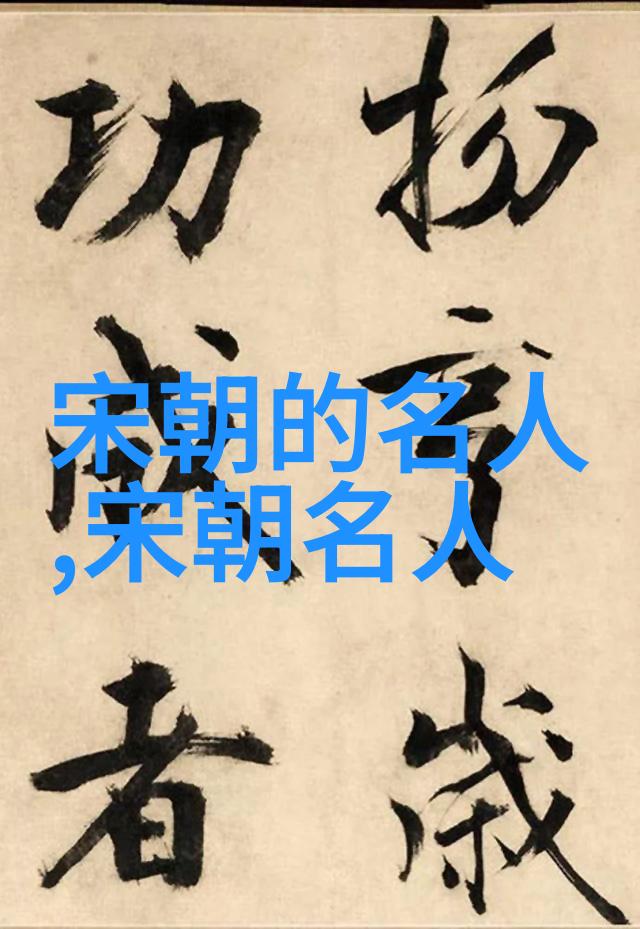 扬
亨
歲
功
成
者
宋朝的名人
,宋朝名人